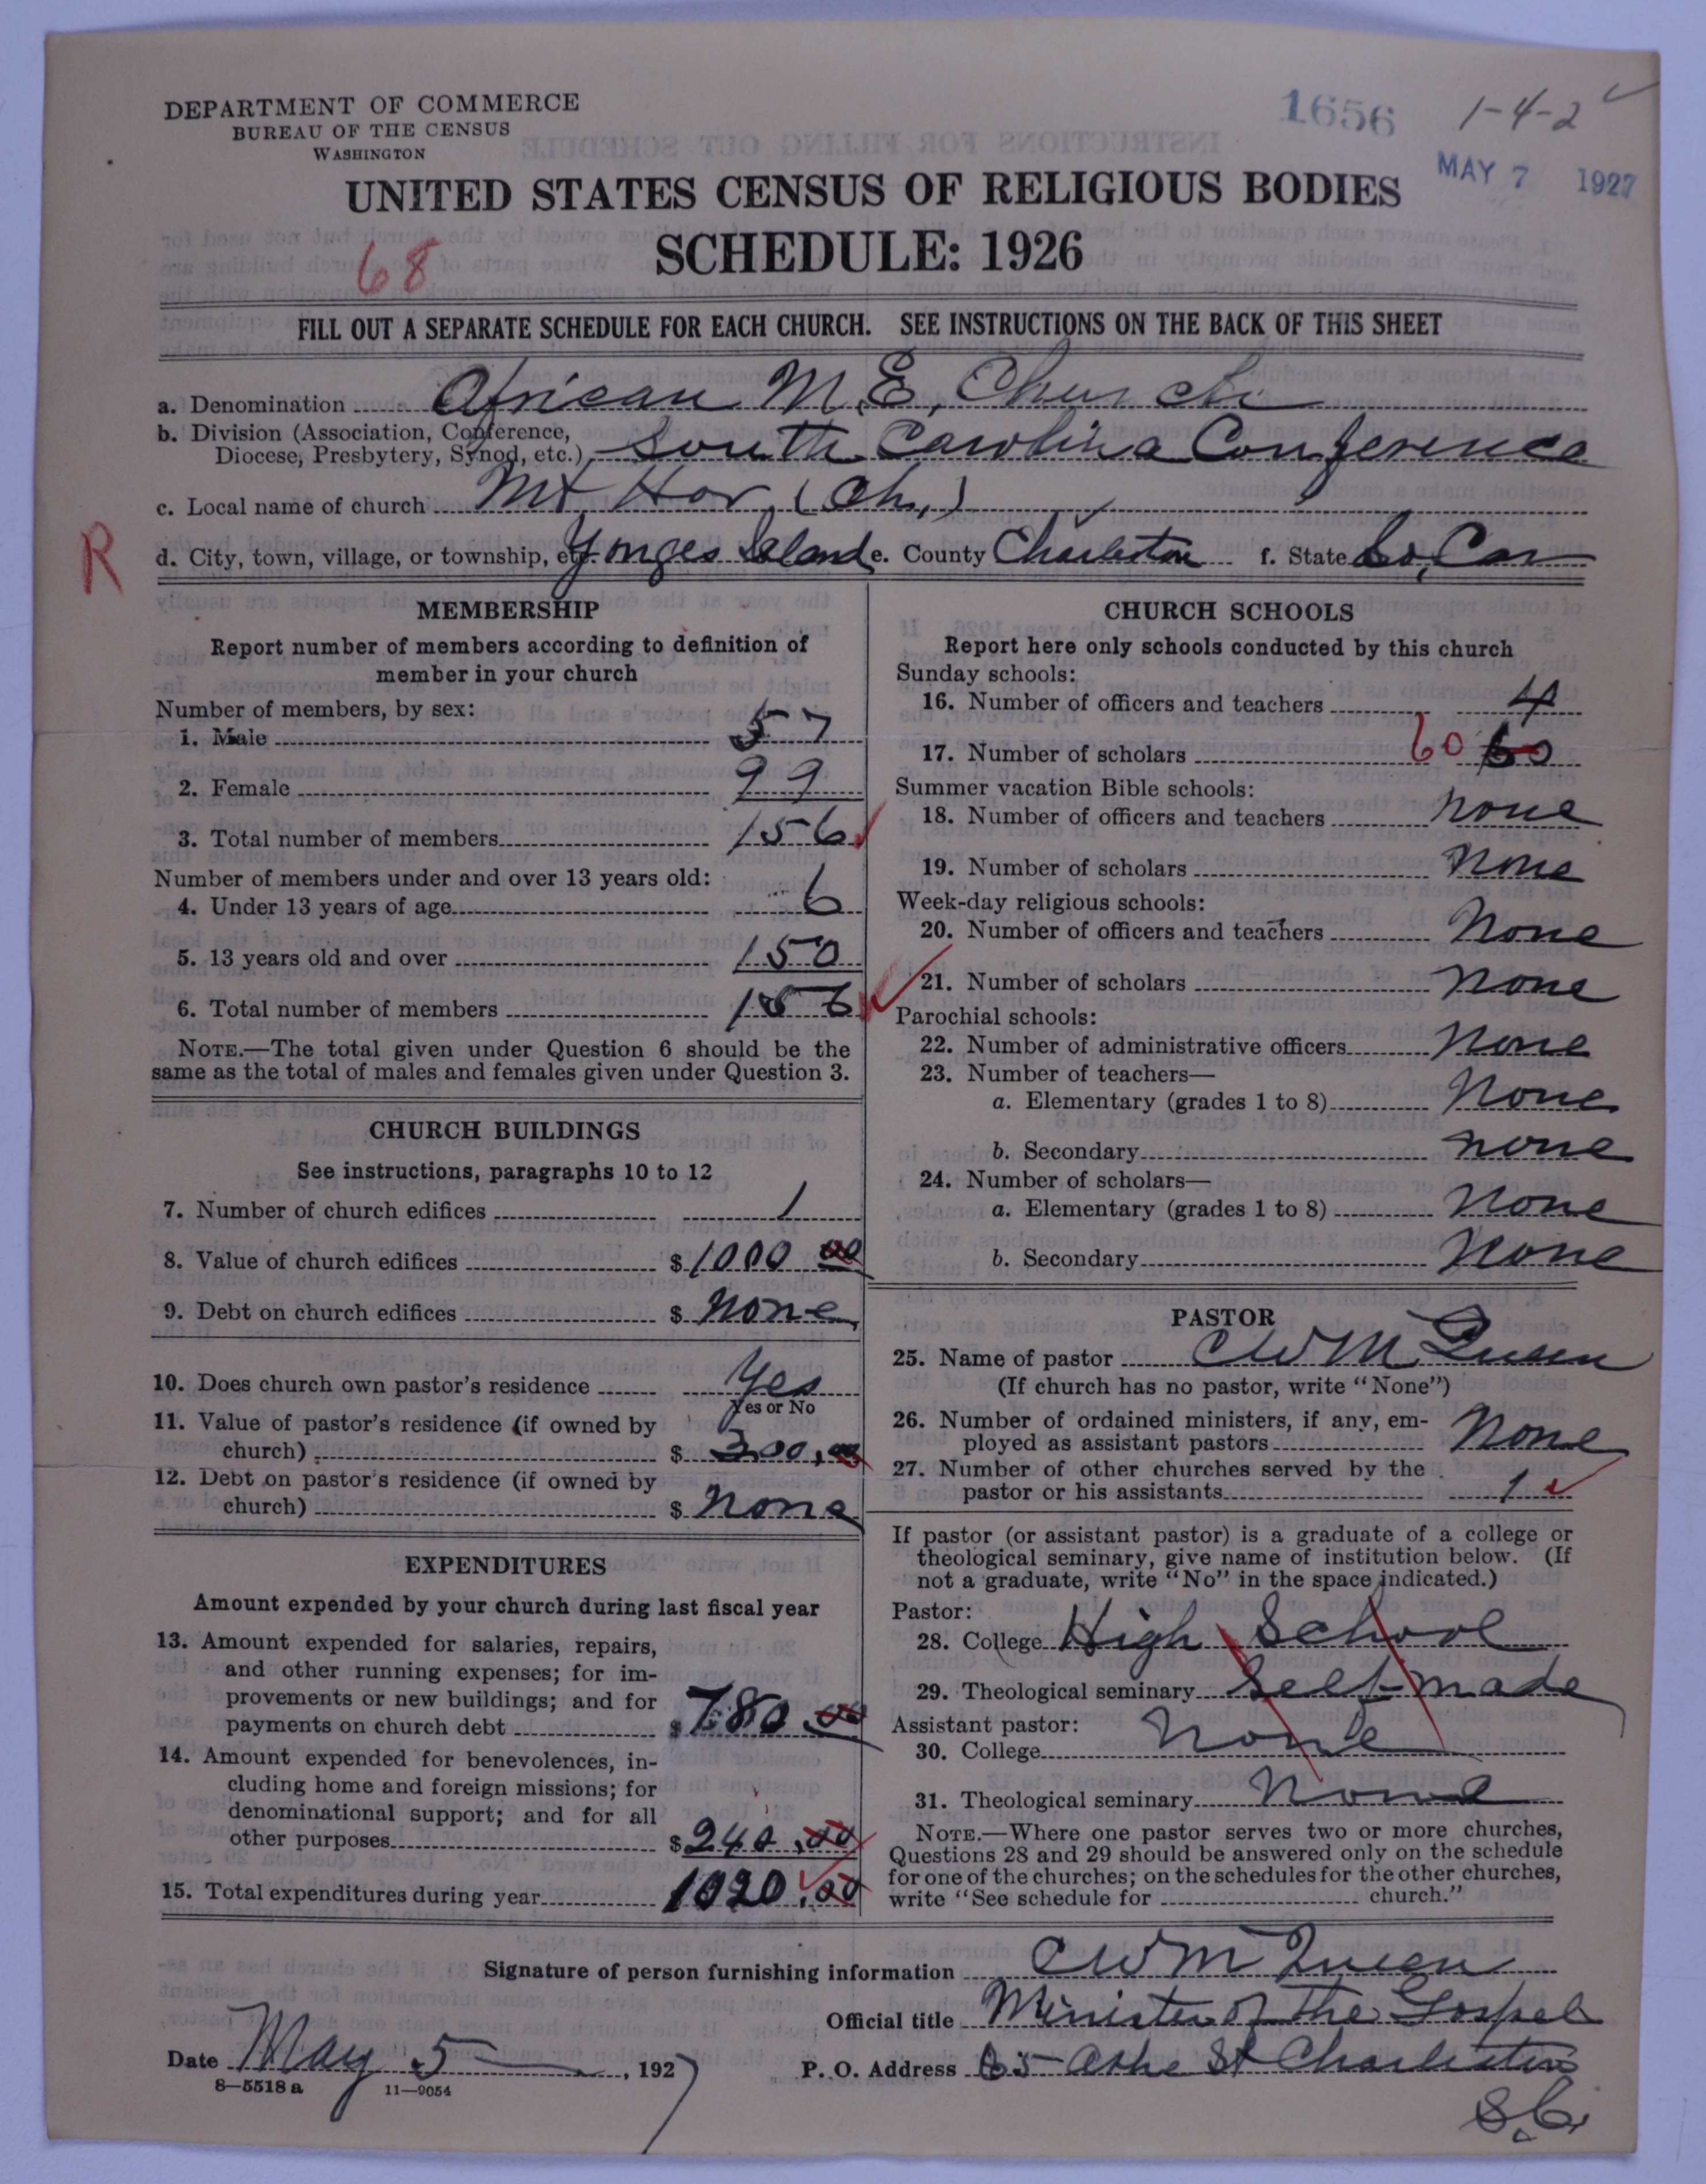 DEPARTMENT OF COMMERCE
BUREAU OF THE CENSUS
WASHINGTON
1656
1-4-2
MAY 7 1927
UNITED STATES CENSUS OF RELIGIOUS BODIES
SCHEDULE: 1926
68
FILL OUT A SEPARATE SCHEDULE FOR EACH CHURCH. SEE INSTRUCTIONS ON THE BACK OF THIS SHEET
a. Denomination African M.E. Church
b. Division (Association, Conference,
Diocese, Presbytery, Synod, etc.) South Carolina Conference
c. Local name of church Mt Hor (Ch.)
R
d. City, town, village, or township, etc. Yonges Island e. County Charleston f. State So. Car
MEMBERSHIP
Report number of members according to definition of
member in your church
Number of members, by sex:
1. Male 57
2. Female 99
3. Total number of members 156
Number of members under and over 13 years old:
4. Under 13 years of age 6
5. 13 years old and over 150
6. Total number of members 156
NOTE.—The total given under Question 6 should be the
same as the total of males and females given under Question 3.
CHURCH BUILDINGS
See instructions, paragraphs 10 to 12
7. Number of church edifices 1
8. Value of church edifices $1000 00
9. Debt on church edifices $ None
10. Does church own pastor's residence Yes
Yes or No
11. Value of pastor's residence (if owned by
church) $ 300.00
12. Debt on pastor's residence (if owned by
church) $ None
EXPENDITURES
Amount expended by your church during last fiscal year
13. Amount expended for salaries, repairs,
and other running expenses; for im-
provements or new buildings; and for
payments on church debt $780.00
14. Amount expended for benevolences, in-
cluding home and foreign missions; for
denominational support; and for all
other purposes $240.00
15. Total expenditures during year 1020.00
CHURCH SCHOOLS
Report here only schools conducted by this church
Sunday schools:
16. Number of officers and teachers 4
17. Number of scholars 60 60
Summer vacation Bible schools:
18. Number of officers and teachers None
19. Number of scholars None
Week-day religious schools:
20. Number of officers and teachers None
21. Number of scholars None
Parochial schools:
22. Number of administrative officers None
23. Number of teachers—
a. Elementary (grades 1 to 8) None
b. Secondary None
24. Number of scholars—
a. Elementary (grades 1 to 8) None
b. Secondary None
PASTOR
25. Name of pastor C W M Queen
(If church has no pastor, write "None")
26. Number of ordained ministers, if any, em-
ployed as assistant pastors None
27. Number of other churches served by the
pastor or his assistants 1
If pastor (or assistant pastor) is a graduate of a college or
theological seminary, give name of institution below. (If
not a graduate, write "No" in the space indicated.)
Pastor:
28. College High School
29. Theological seminary Self-made
Assistant pastor:
30. College None
31. Theological seminary None
NOTE.—Where one pastor serves two or more churches,
Questions 28 and 29 should be answered only on the schedule
for one of the churches; on the schedules for the other churches,
write "See schedule for church."
Signature of person furnishing information C W M Queen
Official title Minister of the Gospel
Date May 5, 1927 P. O. Address 65 Ashe St Charleston
S.C.
8—5518 a 11—9054